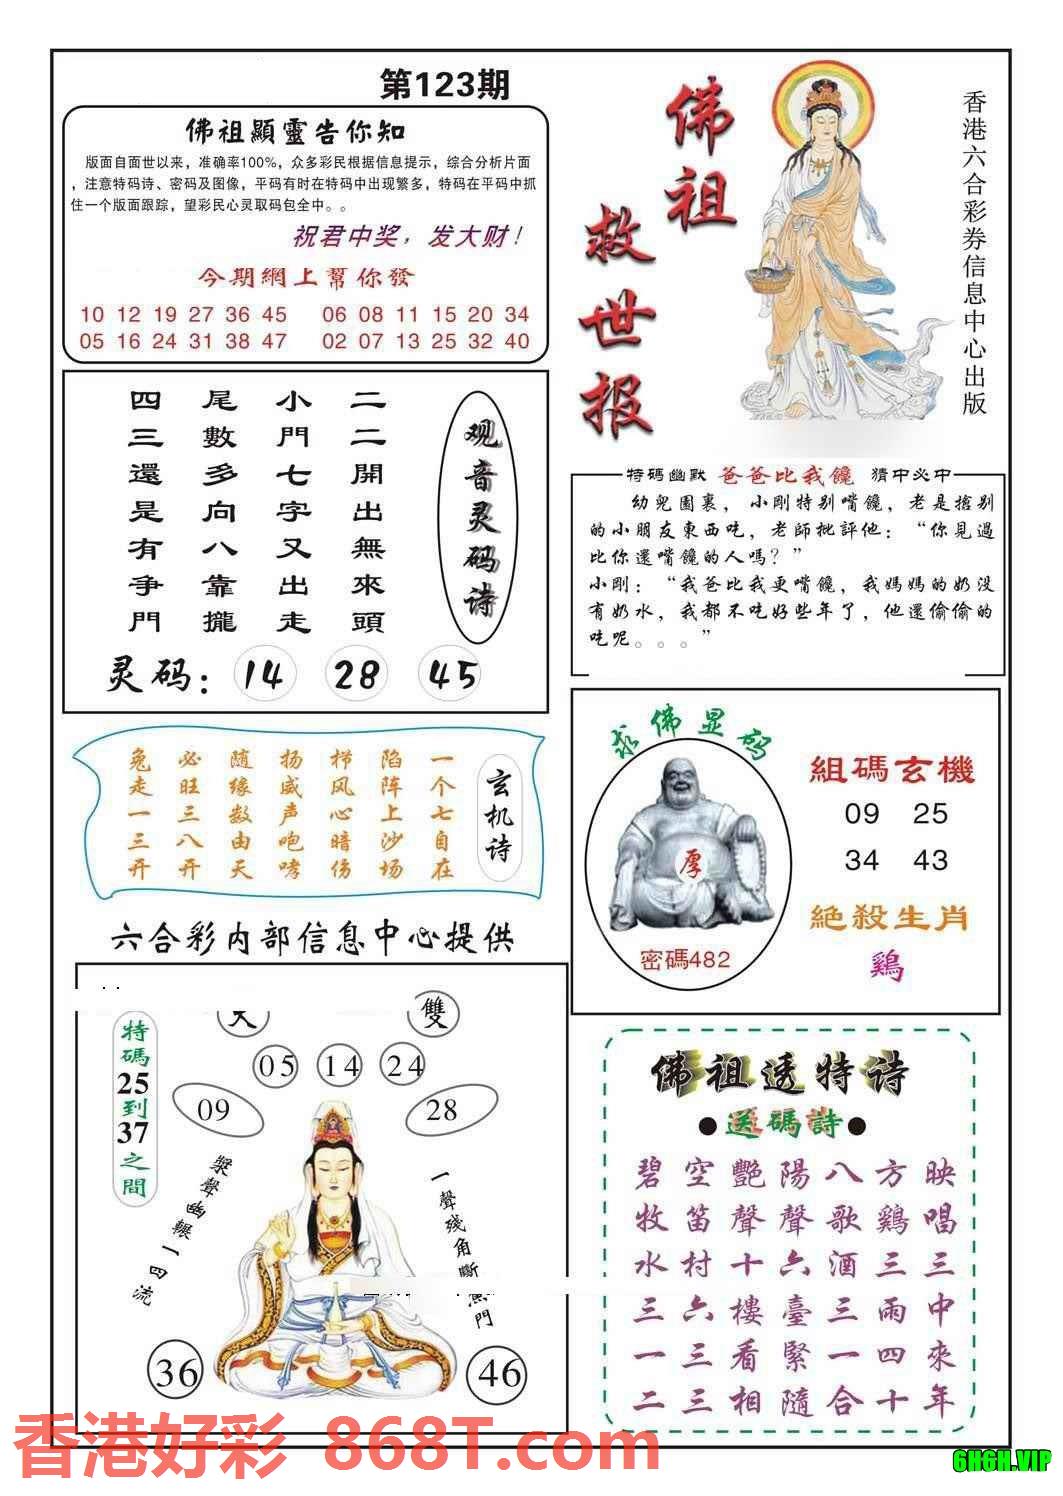 第123期
佛祖顯靈告你知
版面自面世以来，准确率100%，众多彩民根据信息提示，综合分析片面
，注意特码诗、密码及图像，平码有时在特码中出现繁多，特码在平码中抓
住一个版面跟踪，望彩民心灵取码包全中。。
祝君中奖，发大财！
今期網上幫你發
10 12 19 27 36 45 06 08 11 15 20 34
05 16 24 31 38 47 02 07 13 25 32 40
佛祖
救世报
香港六合彩券信息中心出版
观音灵码诗
二二開出無來頭
小門七字又出走
尾數多向八靠攏
四三還是有争門
灵码： 14 28 45
特碼幽默 爸爸比我饞 猜中必中
幼兒園裏，小剛特别嘴饞，老是搶别
的小朋友東西吃，老師批評他：“你見過
比你還嘴饞的人嗎？”
小剛：“我爸比我更嘴饞，我媽媽的奶没
有奶水，我都不吃好些年了，他還偷偷的
吃呢。。。”
玄机诗
一个七自在
陷阵上沙场
梯风心暗伤
扬威声咆哮
随缘数由天
必旺三八开
兔走一三开
求佛显码
厚
密碼482
組碼玄機
09 25
34 43
絶殺生肖
鷄
六合彩内部信息中心提供
特碼25到37之間
雙
05 14 24
09 28
槳聲幽輾一四流
36 46
佛祖透特诗
●送碼詩●
碧空艷陽八方映
牧笛聲聲歌鷄唱
水村十六酒三三
三六樓臺三雨中
一三看緊一四來
二三相隨合十年
香港好彩 868T.com
6H6H.VIP